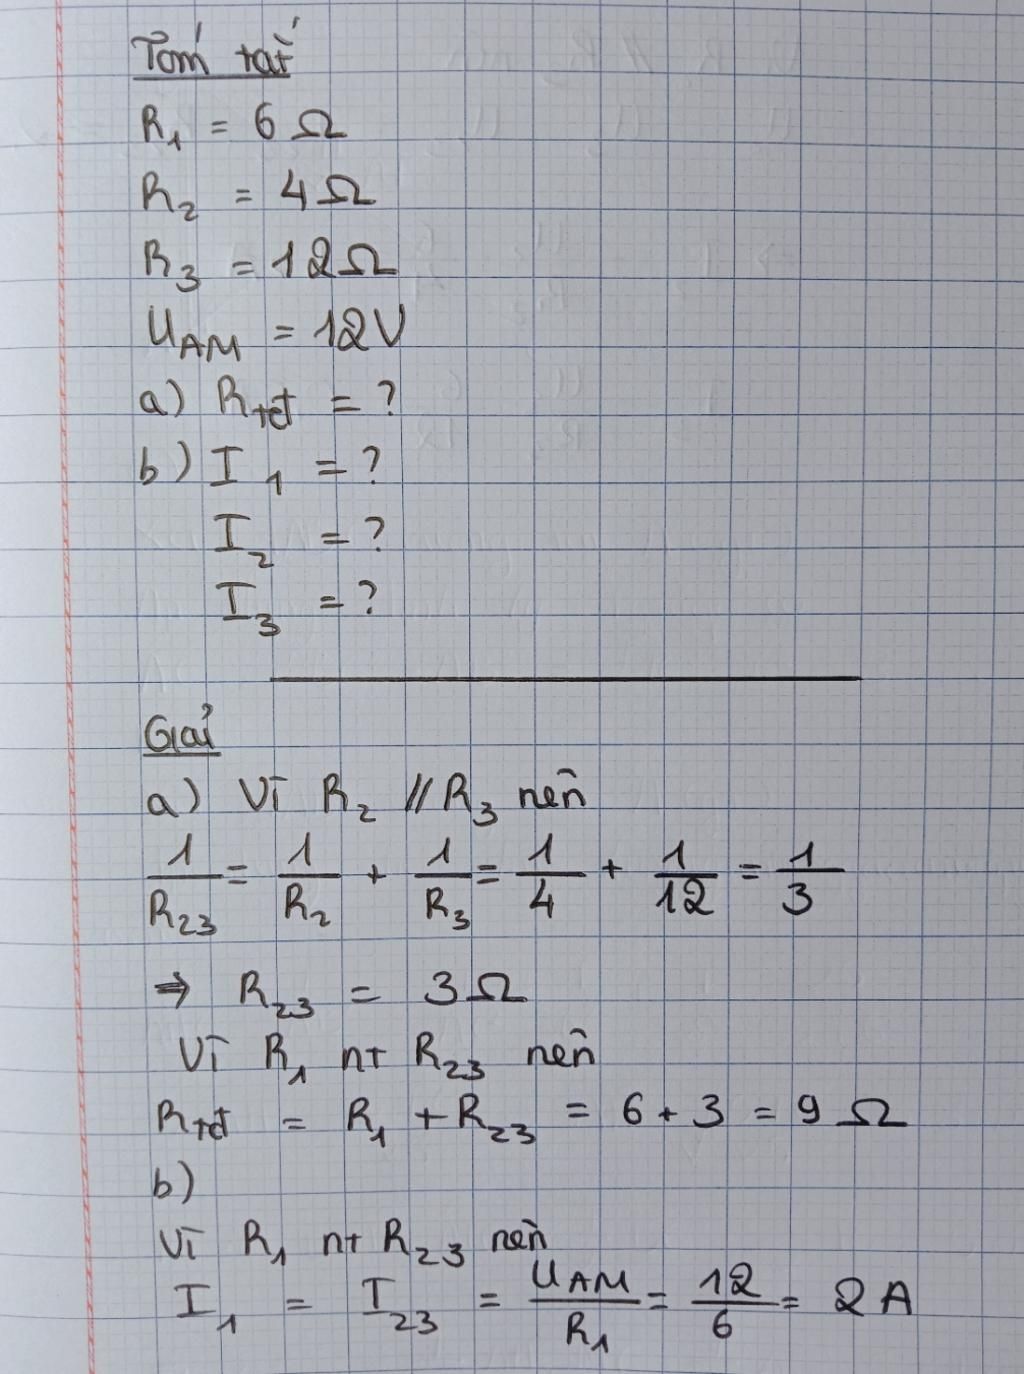 Tóm tắt
R₁ = 6 Ω
R₂ = 4 Ω
R₃ = 12 Ω
U_AM = 12V
a) R_tđ = ?
b) I₁ = ?
I₂ = ?
I₃ = ?
Giải
a) Vì R₂ // R₃ nên
1/R₂₃ = 1/R₂ + 1/R₃ = 1/4 + 1/12 = 1/3
⇒ R₂₃ = 3 Ω
Vì R₁ nt R₂₃ nên
R_tđ = R₁ + R₂₃ = 6 + 3 = 9 Ω
b)
Vì R₁ nt R₂₃ nên
I₁ = I₂₃ = U_AM/R₁ = 12/6 = 2 A